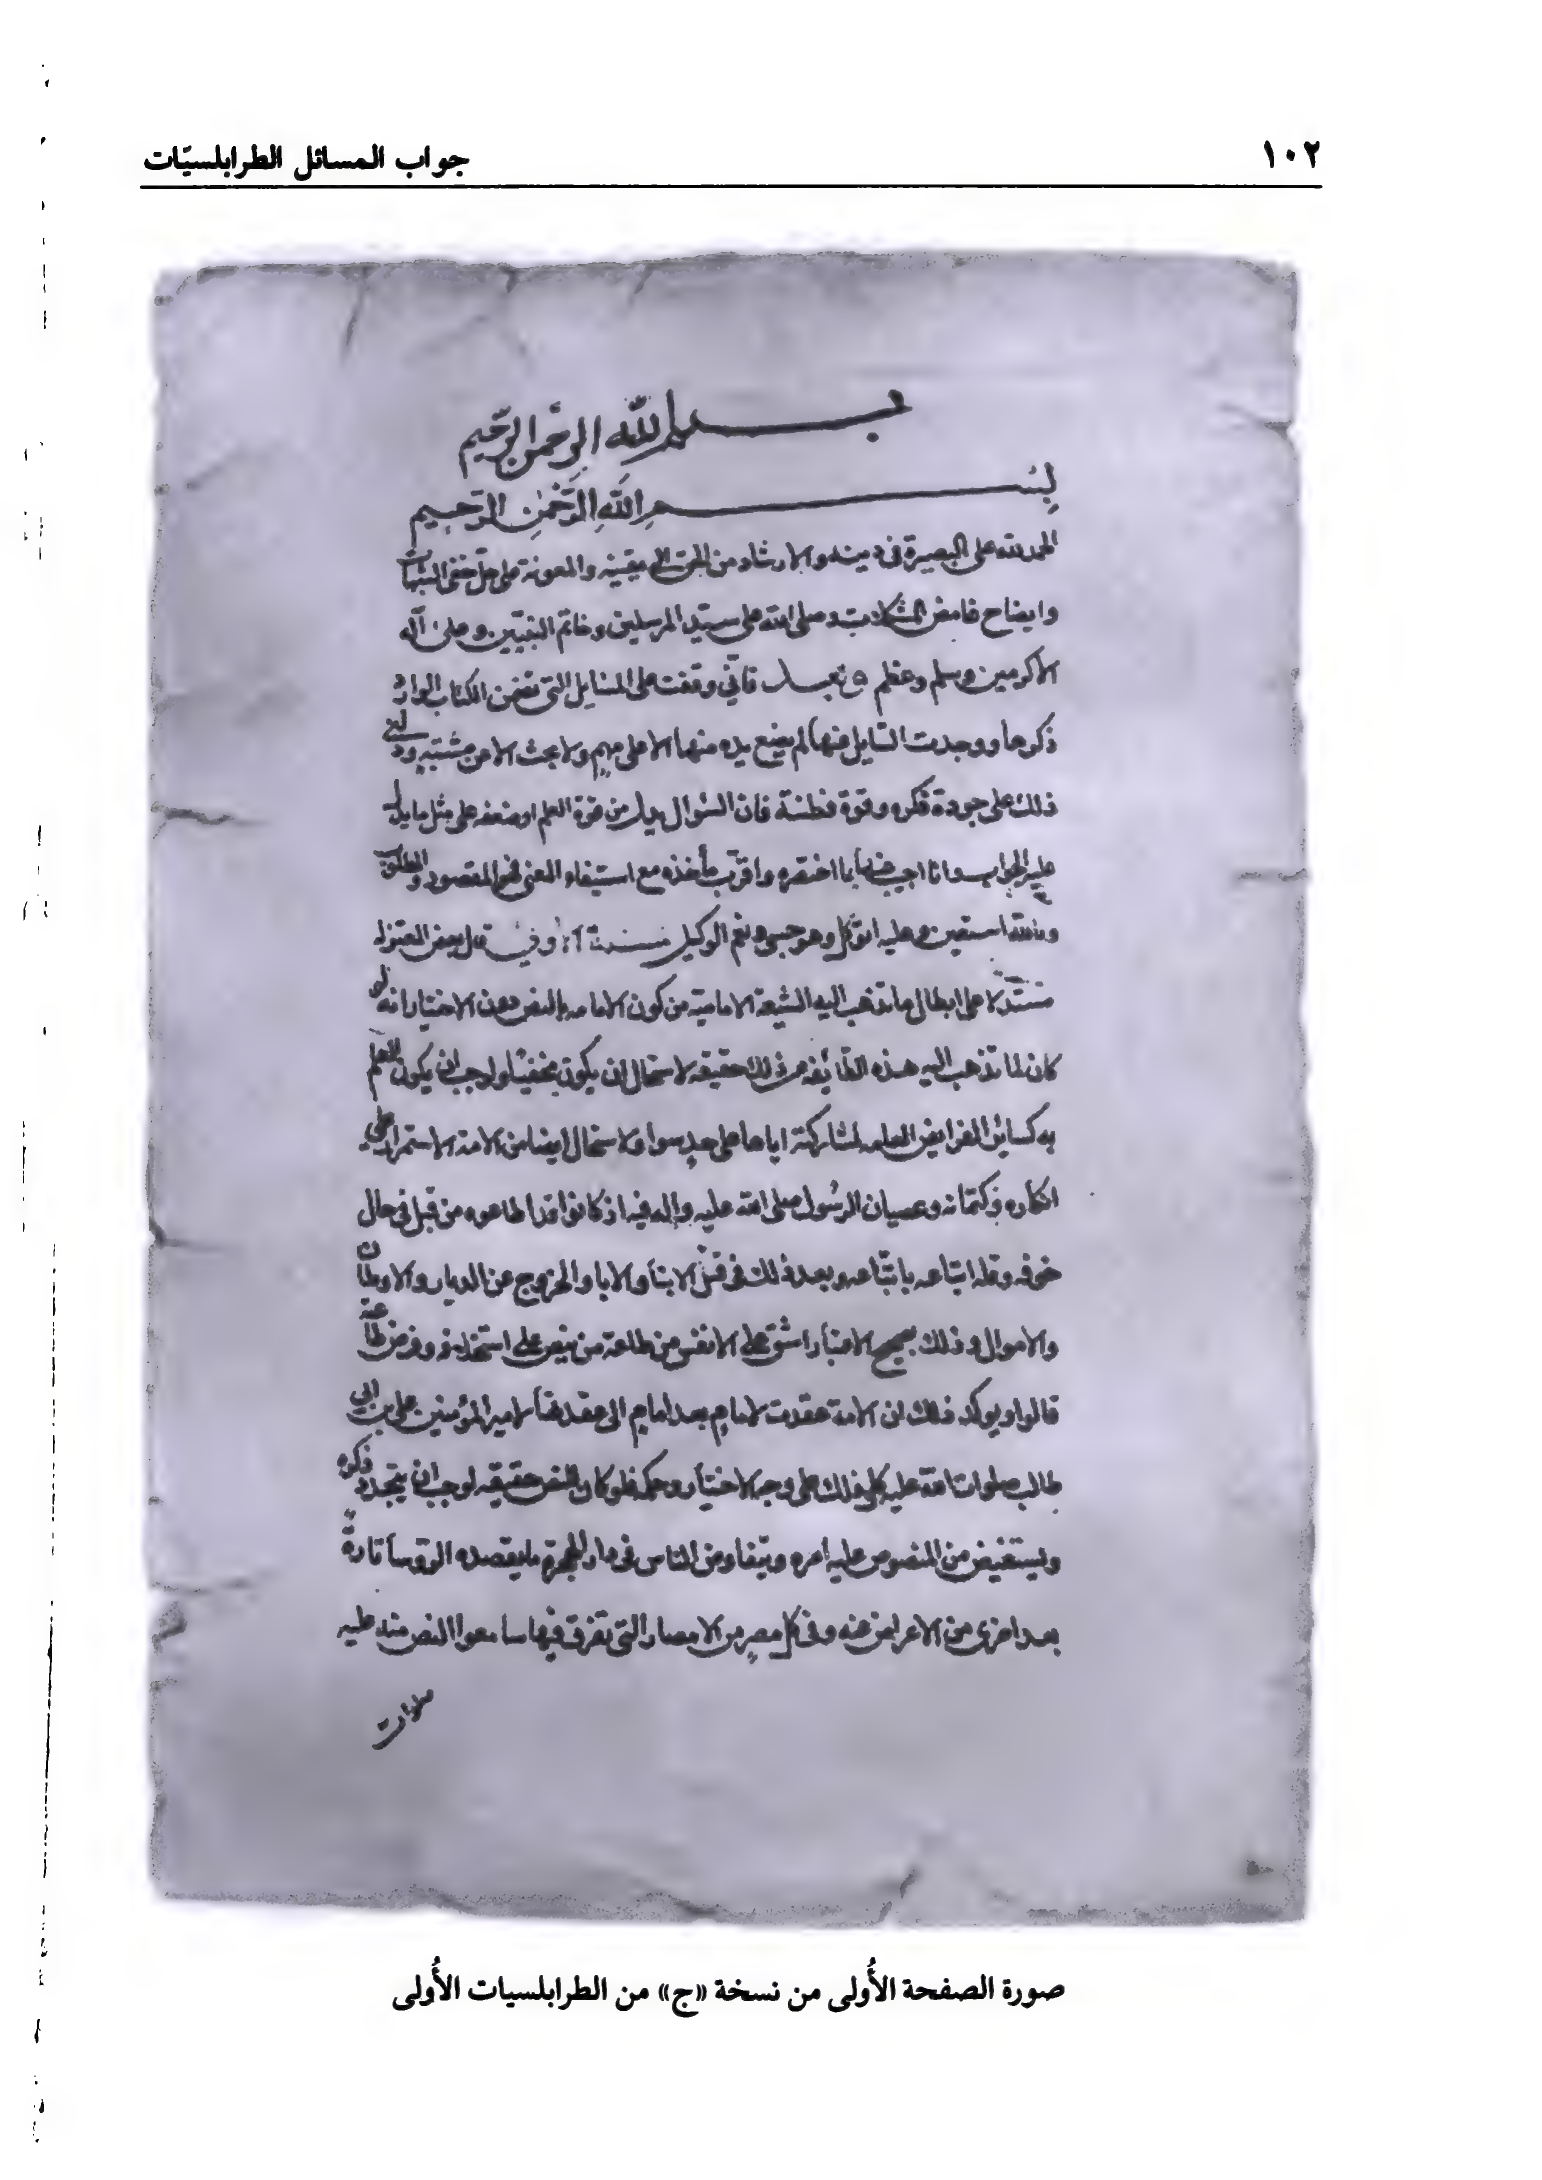 ١٠٢
جواب المسائل الطرابلسيّات
بسم الله الرحمن الرحيم
بِسْمِ اللَّهِ الرَّحْمٰنِ الرَّحِيمِ
الحمد لله على البصيرة في دينه والارشاد من الحق الى يقينه والمعونة على حل خفى الشبهات
وايضاح غامض المشكلات وصلى الله على سيّد المرسلين وخاتم النبيّين وعلى آله
الاكرمين وسلم وعظم بعد فانّي وقفت على المسايل التي تضمن الكتاب الوارد
ذكرها ووجدت السّايل عنها لم يضع يده منها الا على مهم ولا بحث الا عن مشتبه ودلني
ذلك على جودة فكره وقوة فطنة فان السّوال يدل من قوة العلم او ضعفه على مثل ما يدل
عليه الجواب وانا اجيب عنها بما اختصره واقرّب مأخذه مع استيفاء المعنى فهو المقصود والمطلوب
وبالله استعين وعليه اتوكّل وهو حسبي ونعم الوكيل مسئلة اولى قال بعض المعتزله
مستدّلا على ابطال ما تذهب اليه الشيعة الاماميّة من كون الامامه بالنص دون الاختيار انه لو
كان لما تذهب اليه هذه الطّايفه من ذلك حقيقه لاستحال ان يكون مخفيّا ولوجب ان يكون العلم
به كساير الفرايض العلم به لمشاركته اياها على حد سوا ولاستحال ايضا من الامة الاستمرار على
انكاره وكتمانه وعصيان الرسول صلى الله عليه وآله فيه اذ كانوا قد اطاعوه من قبل في حال
خوفه وقله اتباعه باتّباعه وبعد ذلك في قتل الابنا والابا والخروج عن الديار والاوطان
والاموال وذلك بصحيح الاعتبار اشق على الانفس من طاعة من ينص على استخلافه وفرض طاعته
قالوا ويوكد ذلك ان الامة عقدت لامام بعد امام الى عقدها لامير المؤمنين على بن ابي
طالب صلوات الله عليه كل ذلك على وجه الاختيار وحكمه فلو كان للنص حقيقه لوجب ان يتجدد ذكره
ويستفيض من المنصوص عليه امره ويتفاوض الناس في دار الهجرة ما يقصده الرّؤسا تارةً
بعد اخرى من الاعراض عنه وفي كل مصر من الامصار التي تفرق فيها سامعوا النص منه عليه
صلوات
صورة الصفحة الأُولى من نسخة «ج» من الطرابلسيات الأُولى